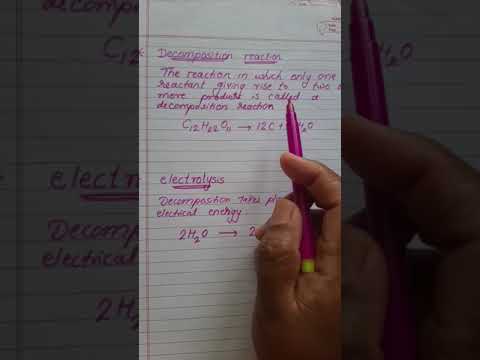 Decomposition reaction
The reaction in which only one
reactant giving rise to two
more product is called a
decomposition reaction
C₁₂H₂₂O₁₁ → 12C + H₂O
electrolysis
Decomposition Takes
electrical energy
2H₂O → 2